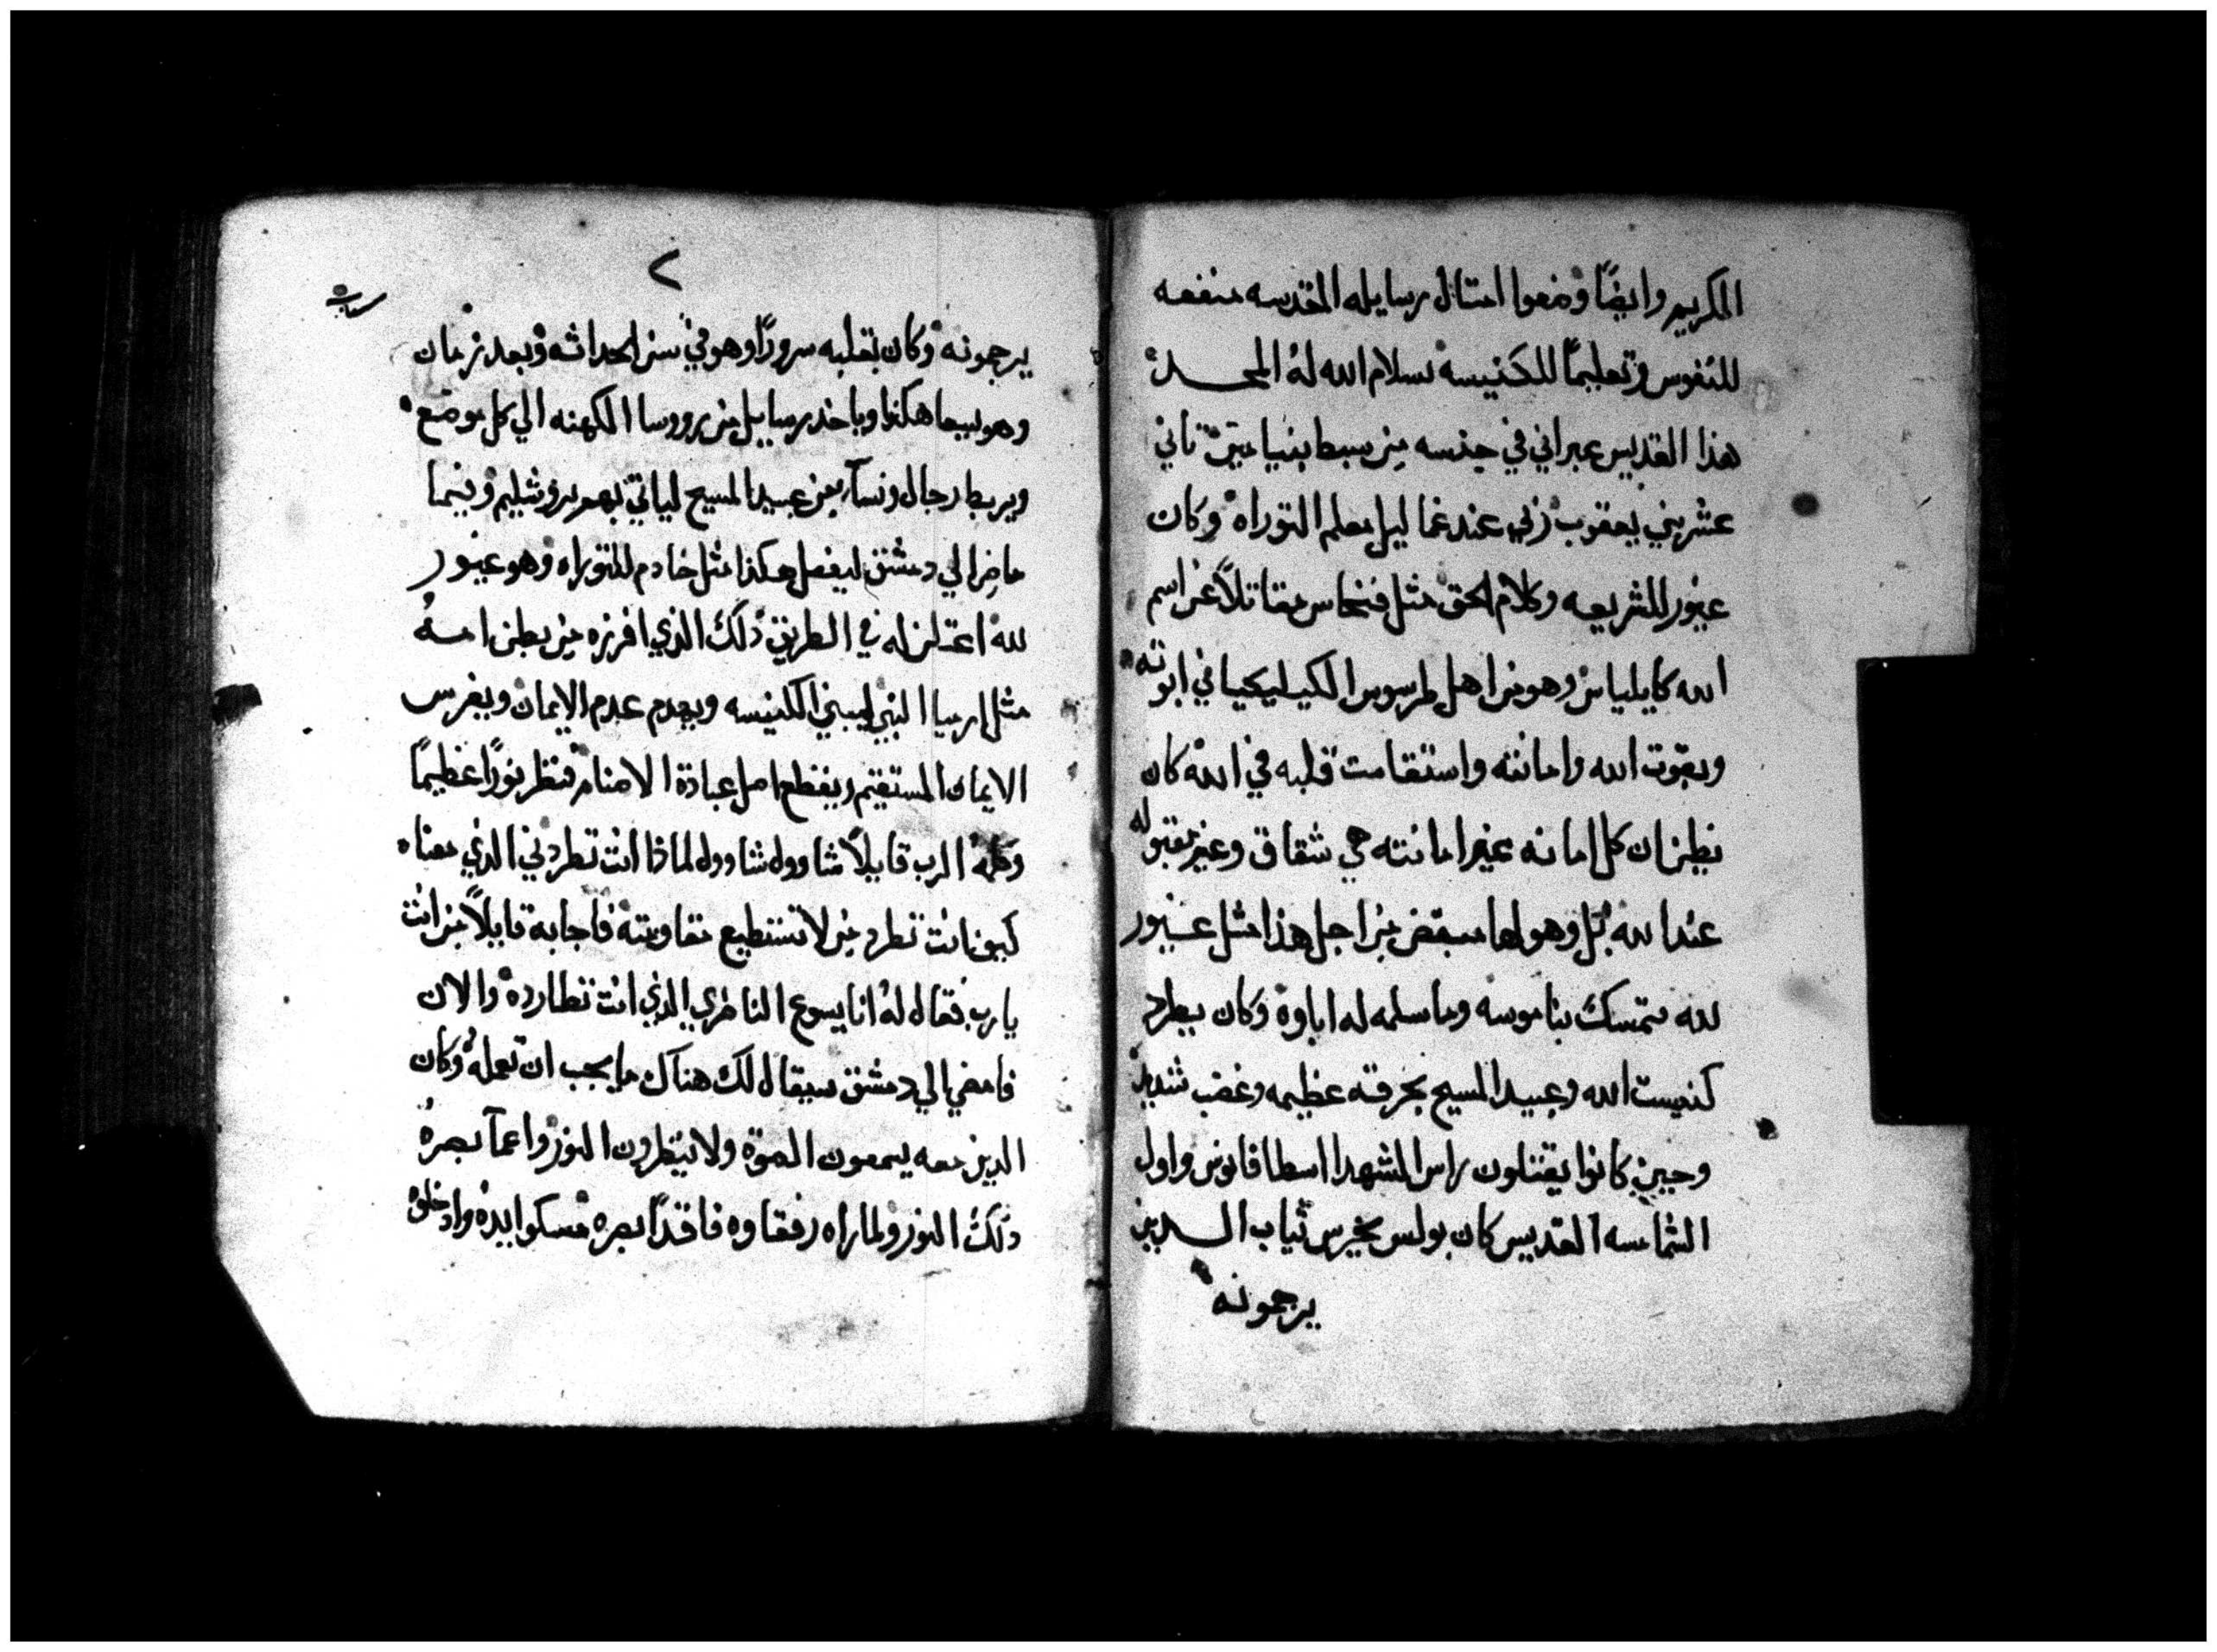 الكريم وايضًا وضعوا امتال رسايله المقدسه منفعه
للنفوس وتعليمًا للكنيسه بسلام الله له المجد
هذا القديس عبراني في جنسه من سبط بنيامين تاني
عشر بني يعقوب زلي عند غماليل معلم التوراه وكان
غيور للشريعه وكلام الحق مثل فنحاس مقاتلاً عن اسم
الله كايلياس وهو من اهل طرسوس الكيليكيا في ابوته
وبقوت الله وامانته واستقامت قلبه في الله كان
يظن ان كل امانه غير امانته هي شقاق وغير مقبوله
عند الله بل وهو لها مبغض من اجل هذا مثل غيور
لله متمسك بناموسه وما سلمه له اباوه وكان يطرد
كنيست الله وعبيد المسيح بحرقه عظيمه وغضب شديد
وحين كانوا يقتلون راس الشهدا اسطافانوس واول
الشمامسه القديس كان بولس يحرس ثياب الدين
يرجمونه
٢
يرجمونه وكان بقلبه سرورًا وهو في سن الحداثه وبعد زمان
وهو يسعا هكذا وياخد رسايل من رووسا الكهنه الي كل موضع
ويربط رجال ونسآ من عبيد المسيح لياتي بهم يروشليم وبينما
ماضرا الي دمشق ليفعل هكذا مثل خادم للتوراه وهو غيور
لله اعتلن له في الطريق ذلك الذي افرزه من بطن امه
مثل ارميا النبي ليبني الكنيسه ويهدم عدم الايمان ويغرس
الايمان المستقيم ويقطع اصل عبادة الاصنام فنظر نورًا عظيمًا
وكلمه الرب قايلاً شاوول شاوول لماذا انت تطردني الذي معناه
كيف انت تطرد من لا تستطيع مقاومته فاجابه قايلاً من انت
يارب فقال له انا يسوع الناصري الذي انت تطارده والان
فامضي الي دمشق سيقال لك هناك ما يجب ان تعمله وكان
الدين معه يسمعون الصوت ولا ينظرون النور واعمآ بصره
ذلك النور ولما راه رفقاوه فاقدًا بصره مسكوا يده وادخلوه